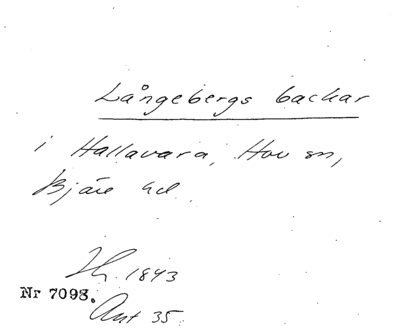 Långebergs backar
i Hallavara, Hov sn,
Bjäre hd
1843
Nr 7098.
Ant 35